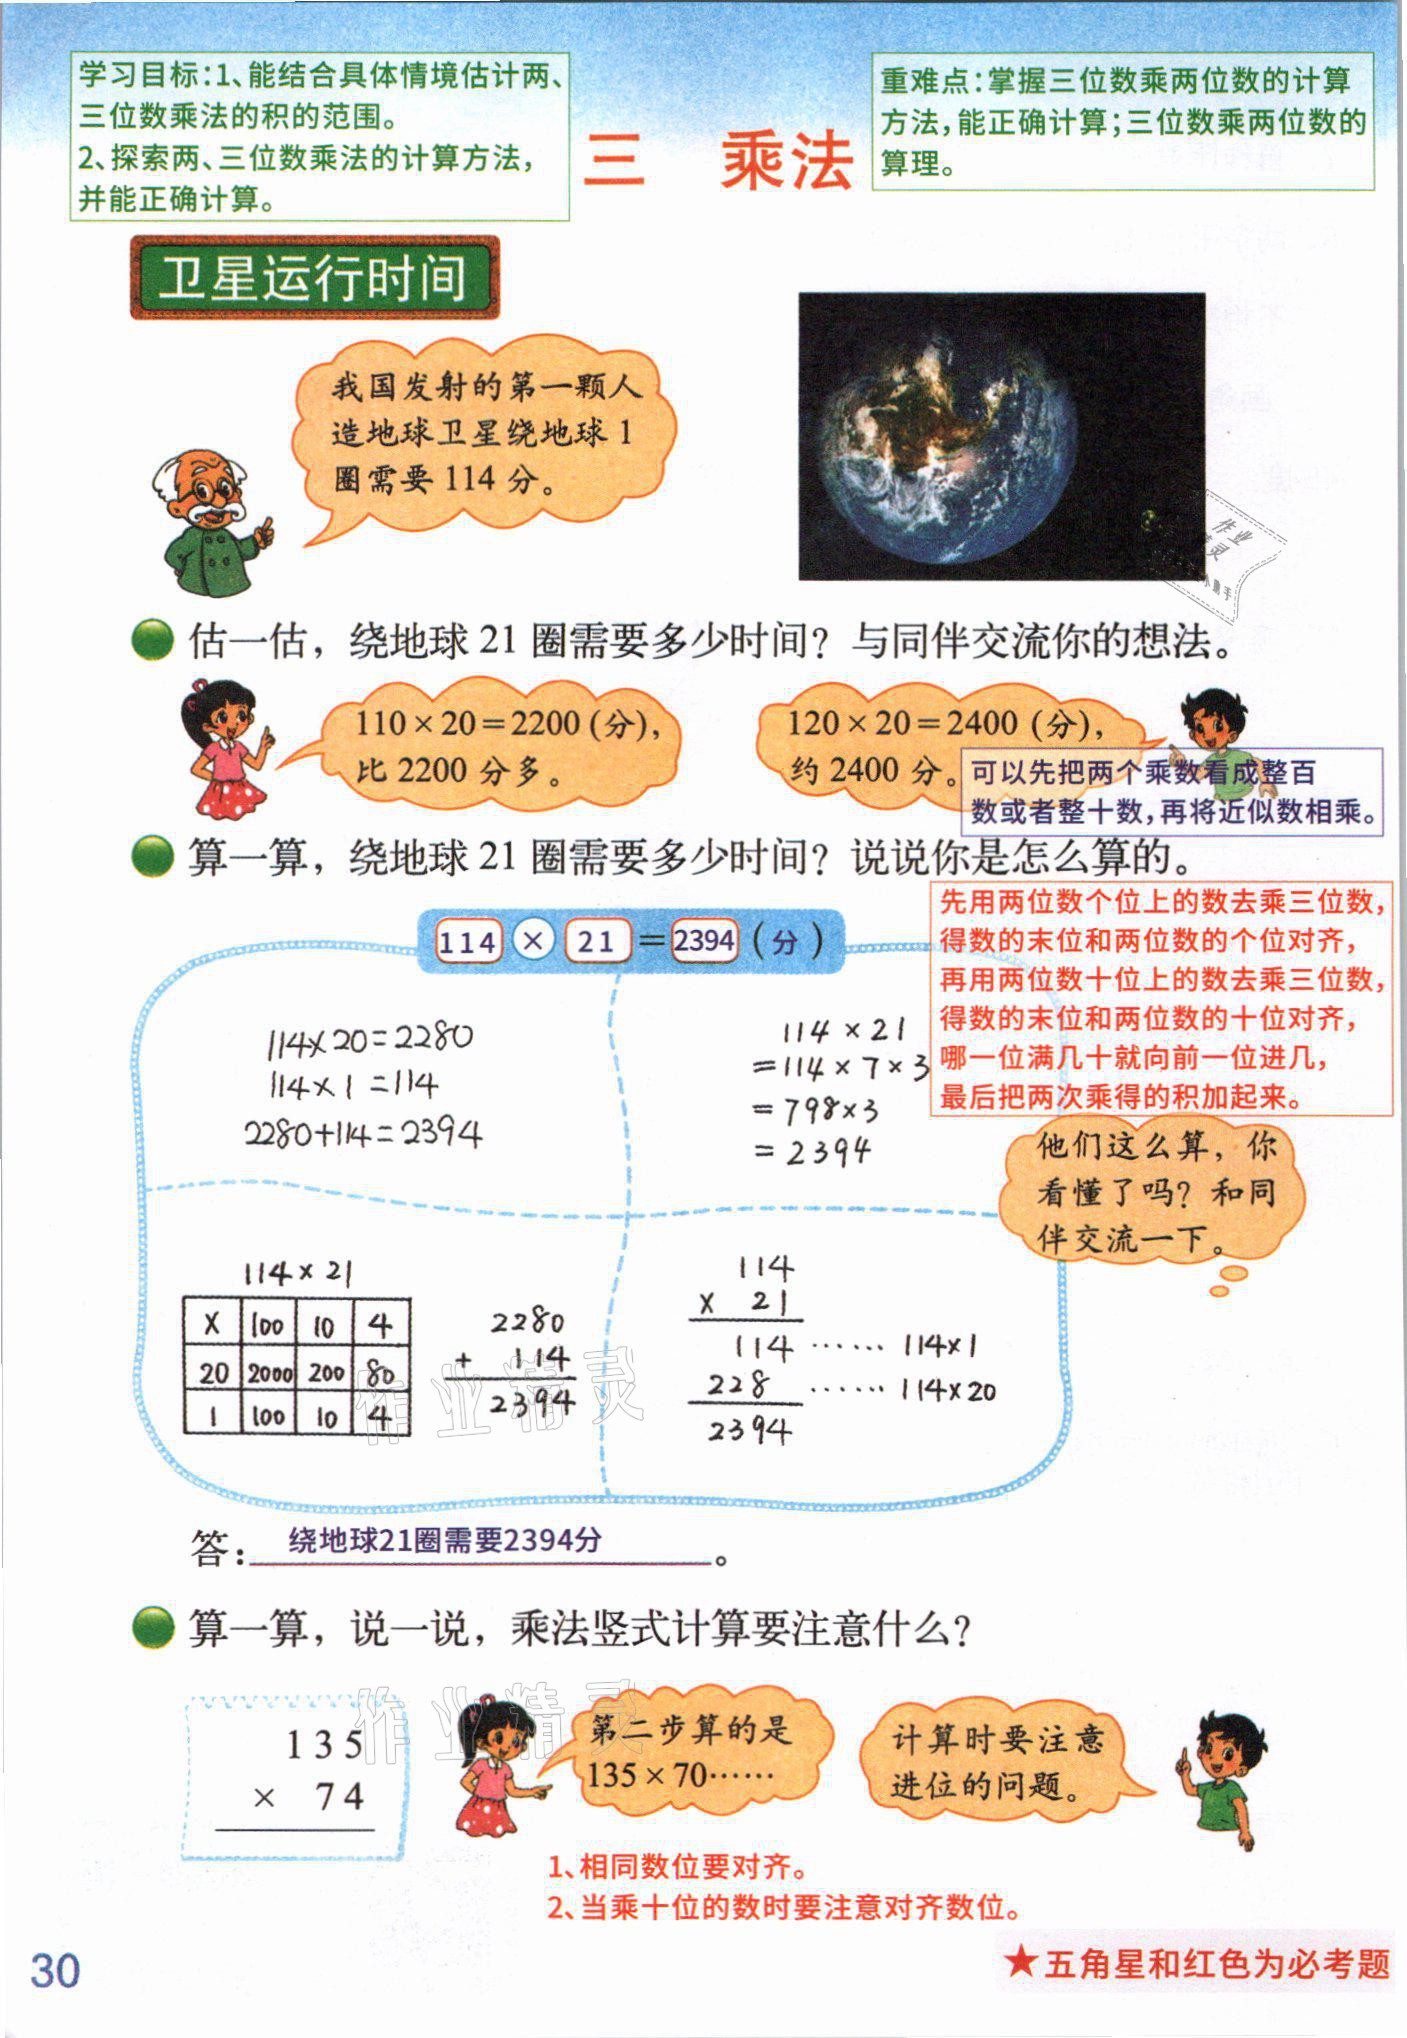 学习目标:1、能结合具体情境估计两、
三位数乘法的积的范围。
2、探索两、三位数乘法的计算方法，
并能正确计算。
重难点:掌握三位数乘两位数的计算
方法，能正确计算；三位数乘两位数的
算理。
三 乘法
卫星运行时间
我国发射的第一颗人
造地球卫星绕地球 1
圈需要 114 分。
作业
估一估，绕地球 21 圈需要多少时间？与同伴交流你的想法。
110×20=2200(分)，
比 2200 分多。
120×20=2400 (分)，
约 2400 分。
可以先把两个乘数看成整百
数或者整十数，再将近似数相乘。
算一算，绕地球 21 圈需要多少时间？说说你是怎么算的。
114 × 21 = 2394 ( 分 )
先用两位数个位上的数去乘三位数，
得数的末位和两位数的个位对齐，
再用两位数十位上的数去乘三位数，
得数的末位和两位数的十位对齐，
哪一位满几十就向前一位进几，
最后把两次乘得的积加起来。
114×20=2280
114×1=114
2280+114=2394
114×21
=114×7×3
=798×3
=2394
他们这么算，你
看懂了吗？和同
伴交流一下。
114×21
× 100 10 4
20 2000 200 80
1 100 10 4
2280
+ 114
2394
114
× 21
114 …… 114×1
228 …… 114×20
2394
作业精灵
答：绕地球21圈需要2394分。
算一算，说一说，乘法竖式计算要注意什么？
作业精灵
135
× 74
第二步算的是
135×70……
计算时要注意
进位的问题。
1、相同数位要对齐。
2、当乘十位的数时要注意对齐数位。
30
★五角星和红色为必考题